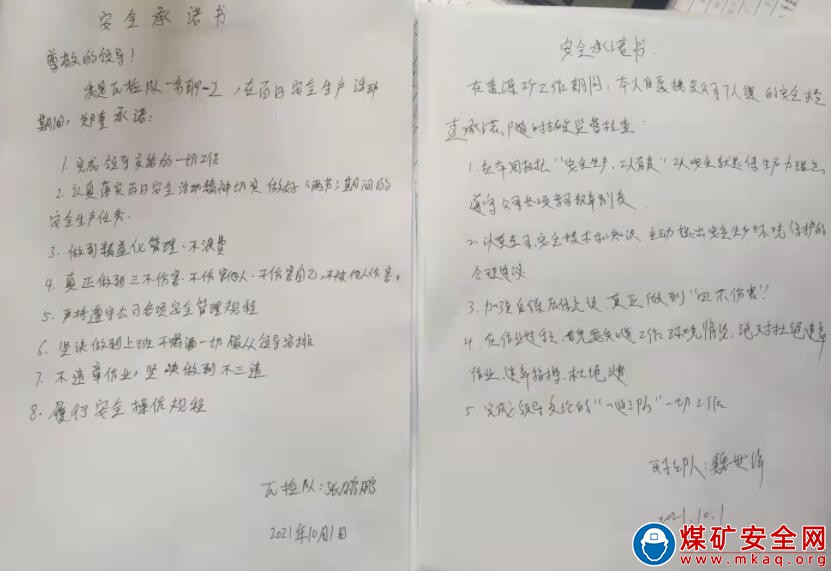 安全承诺书
尊敬的领导！
我是瓦检队一名职工，在百日安全生产活动
期间，郑重承诺：
1. 完成领导交给的一切工作
2. 认真落实百日安全活动精神切实做好《两节》期间的
安全生产任务。
3. 做到精益化管理、不浪费
4. 真正做到三不伤害·不伤害他人、不伤害自己，不被他人伤害。
5. 严格遵守公司各项安全管理规程
6. 坚决做到上班不喝酒一切服从领导安排
7. 不违章作业，坚决做到不三违
8. 履行安全操作规程
瓦检队：张鹏鹏
2021年10月1日
安全承诺书.
在 工作期间，本人自愿 公司 的安全检
查承诺，随时接受监督检查：
1. "安全生产，人人有责" 安全就是 生产力理念
遵守公司各项 规章制度
2. 认真 安全技术 知识 主动提出安全生产环境保护的
合理建议
3. 加强自保 意识 真正做到"四不伤害"!
4. 在作业过程，首先要 工作环境情况，绝对杜绝违章
作业、违章指挥、杜绝
5. 完成领导交给的 一切工作
承诺人：魏世
2021.10.1
煤矿安全网
www.mkaq.org